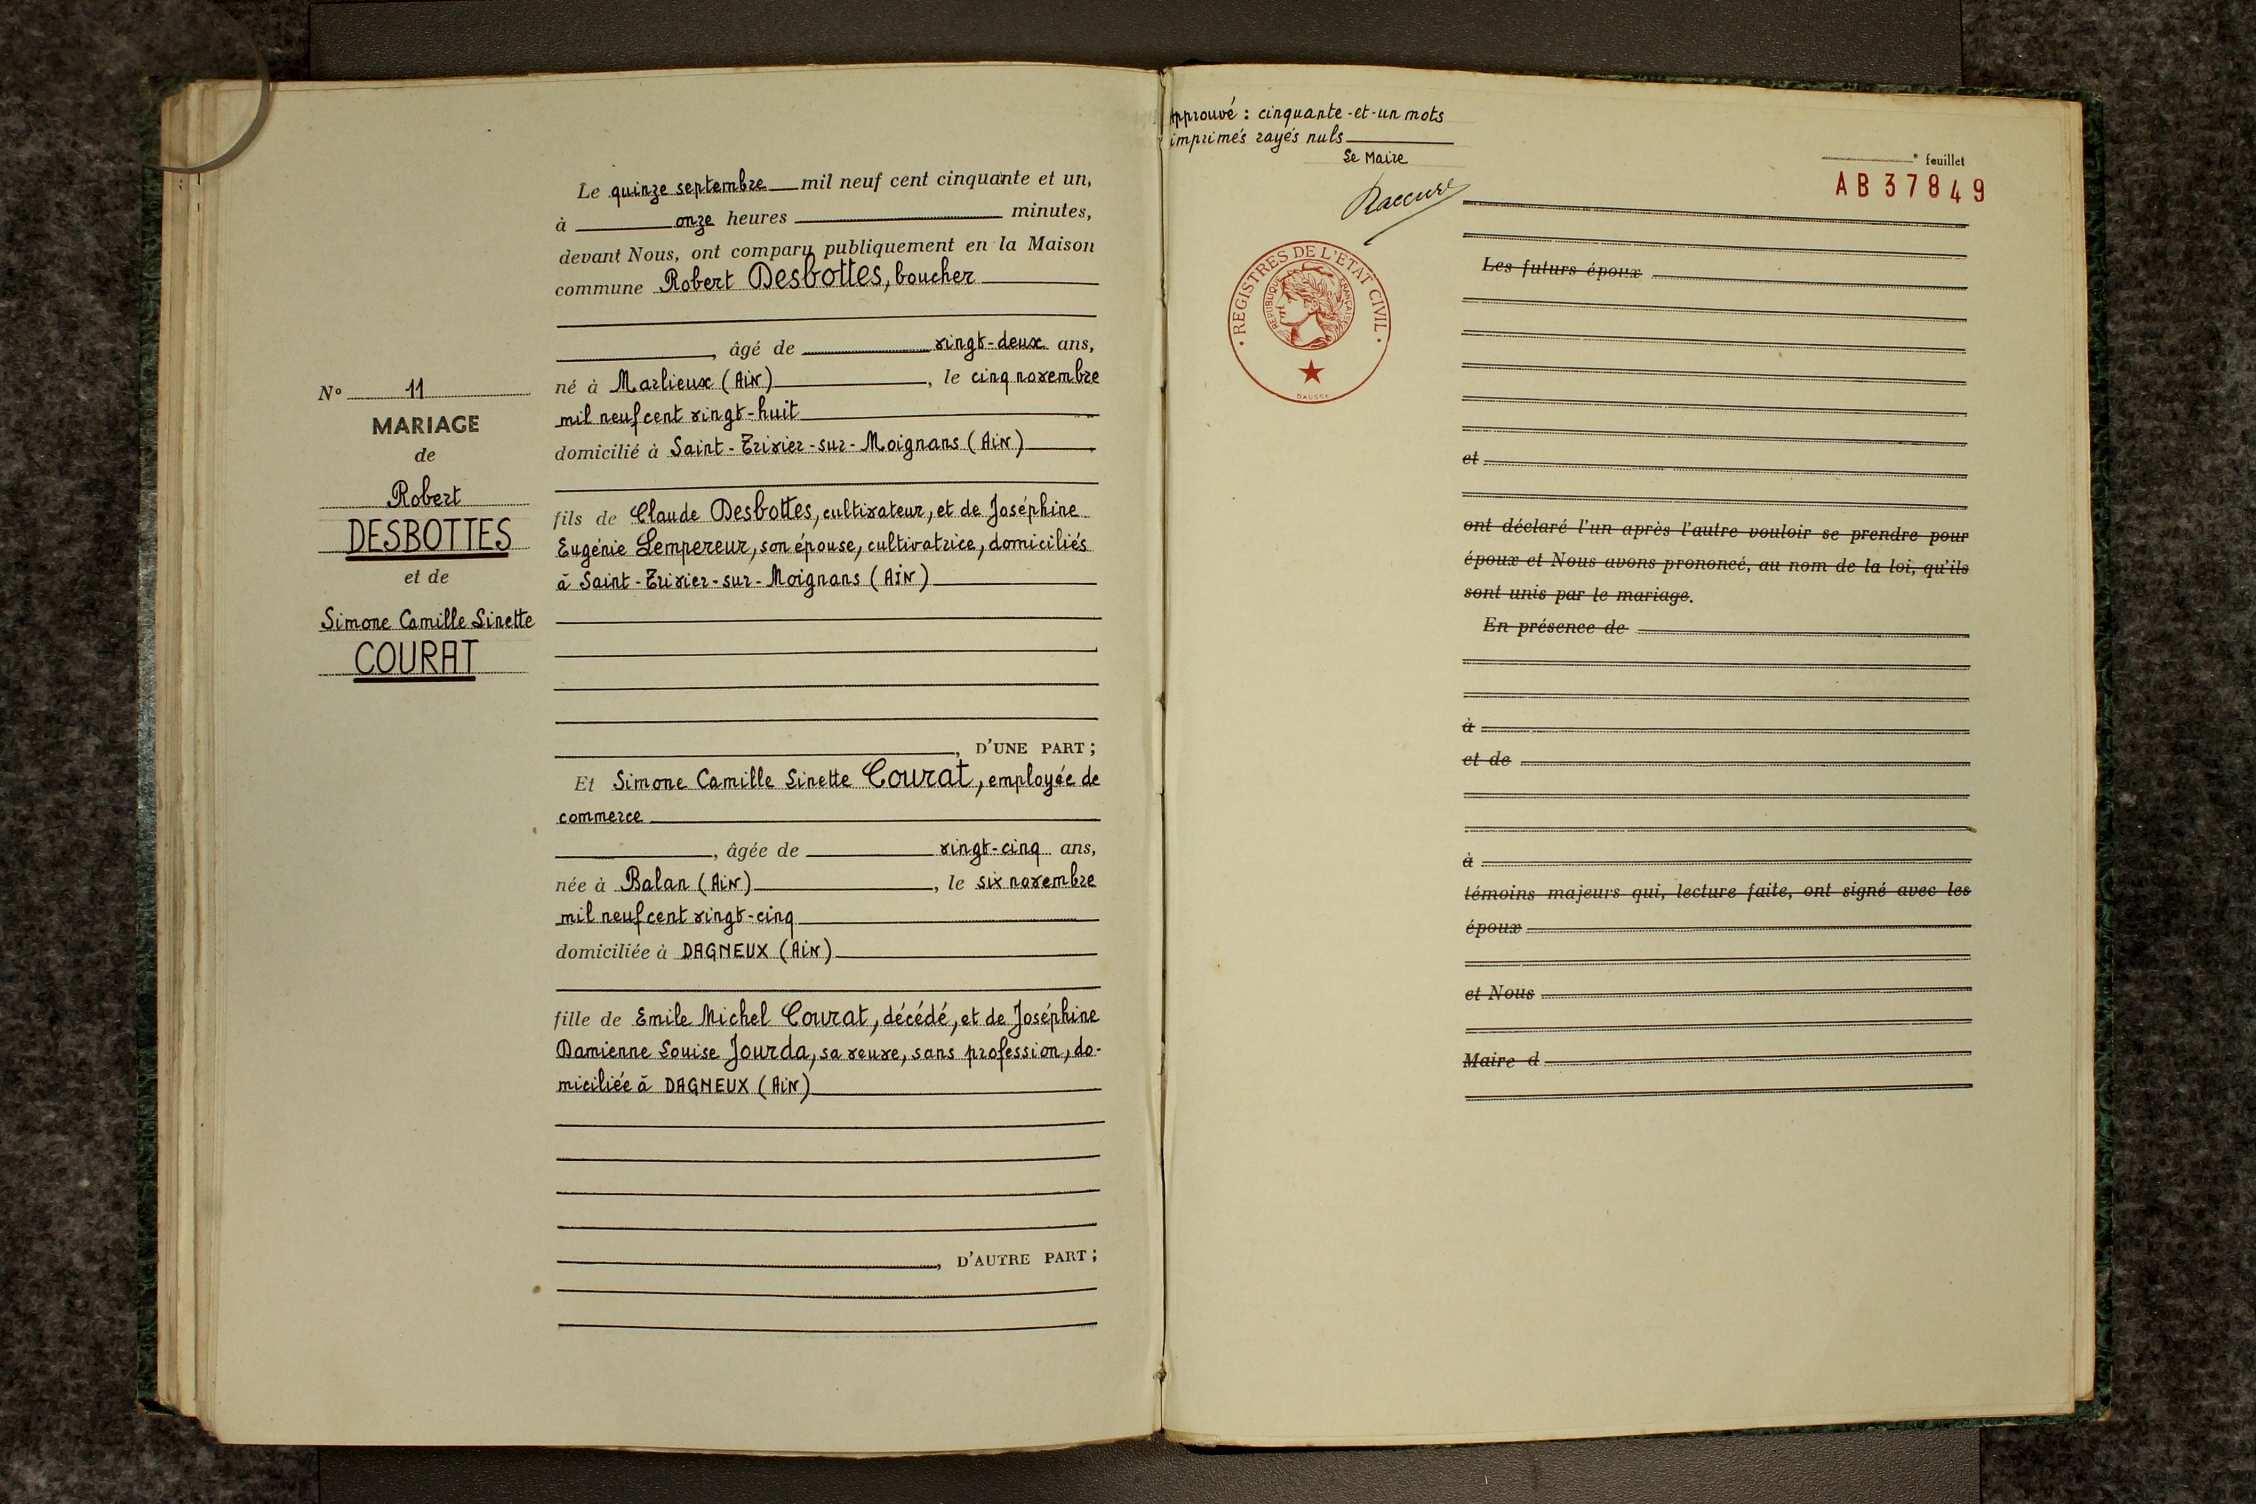 N° 11
MARIAGE
de
Robert
DESBOTTES
et de
Simone Camille Linette
COURAT
Le quinze septembre mil neuf cent cinquante et un,
à onze heures minutes,
devant Nous, ont comparu publiquement en la Maison
commune Robert Desbottes, boucher
, âgé de vingt-deux ans,
né à Marlieux (Ain), le cinq novembre
mil neuf cent vingt-huit
domicilié à Saint-Trivier-sur-Moignans (Ain)
fils de Claude Desbottes, cultivateur, et de Joséphine
Eugénie Lempereur, son épouse, cultivatrice, domiciliés
à Saint-Trivier-sur-Moignans (Ain)
, D'UNE PART ;
Et Simone Camille Linette Courat, employée de
commerce
, âgée de vingt-cinq ans,
née à Balan (Ain), le six novembre
mil neuf cent vingt-cinq
domiciliée à DAGNEUX (Ain)
fille de Emile Michel Courat, décédé, et de Joséphine
Damienne Louise Jourda, sa veuve, sans profession, do-
miciliée à DAGNEUX (Ain)
, D'AUTRE PART ;
Approuvé : cinquante-et-un mots
imprimés rayés nuls
Le Maire
REGISTRES DE L'ETAT CIVIL
REPUBLIQUE FRANÇAISE
DAUSSE
e feuillet
AB37849
Les futurs époux
et
ont déclaré l'un après l'autre vouloir se prendre pour
époux et Nous avons prononcé, au nom de la loi, qu'ils
sont unis par le mariage.
En présence de
à
et de
à
témoins majeurs qui, lecture faite, ont signé avec les
époux
et Nous
Maire d